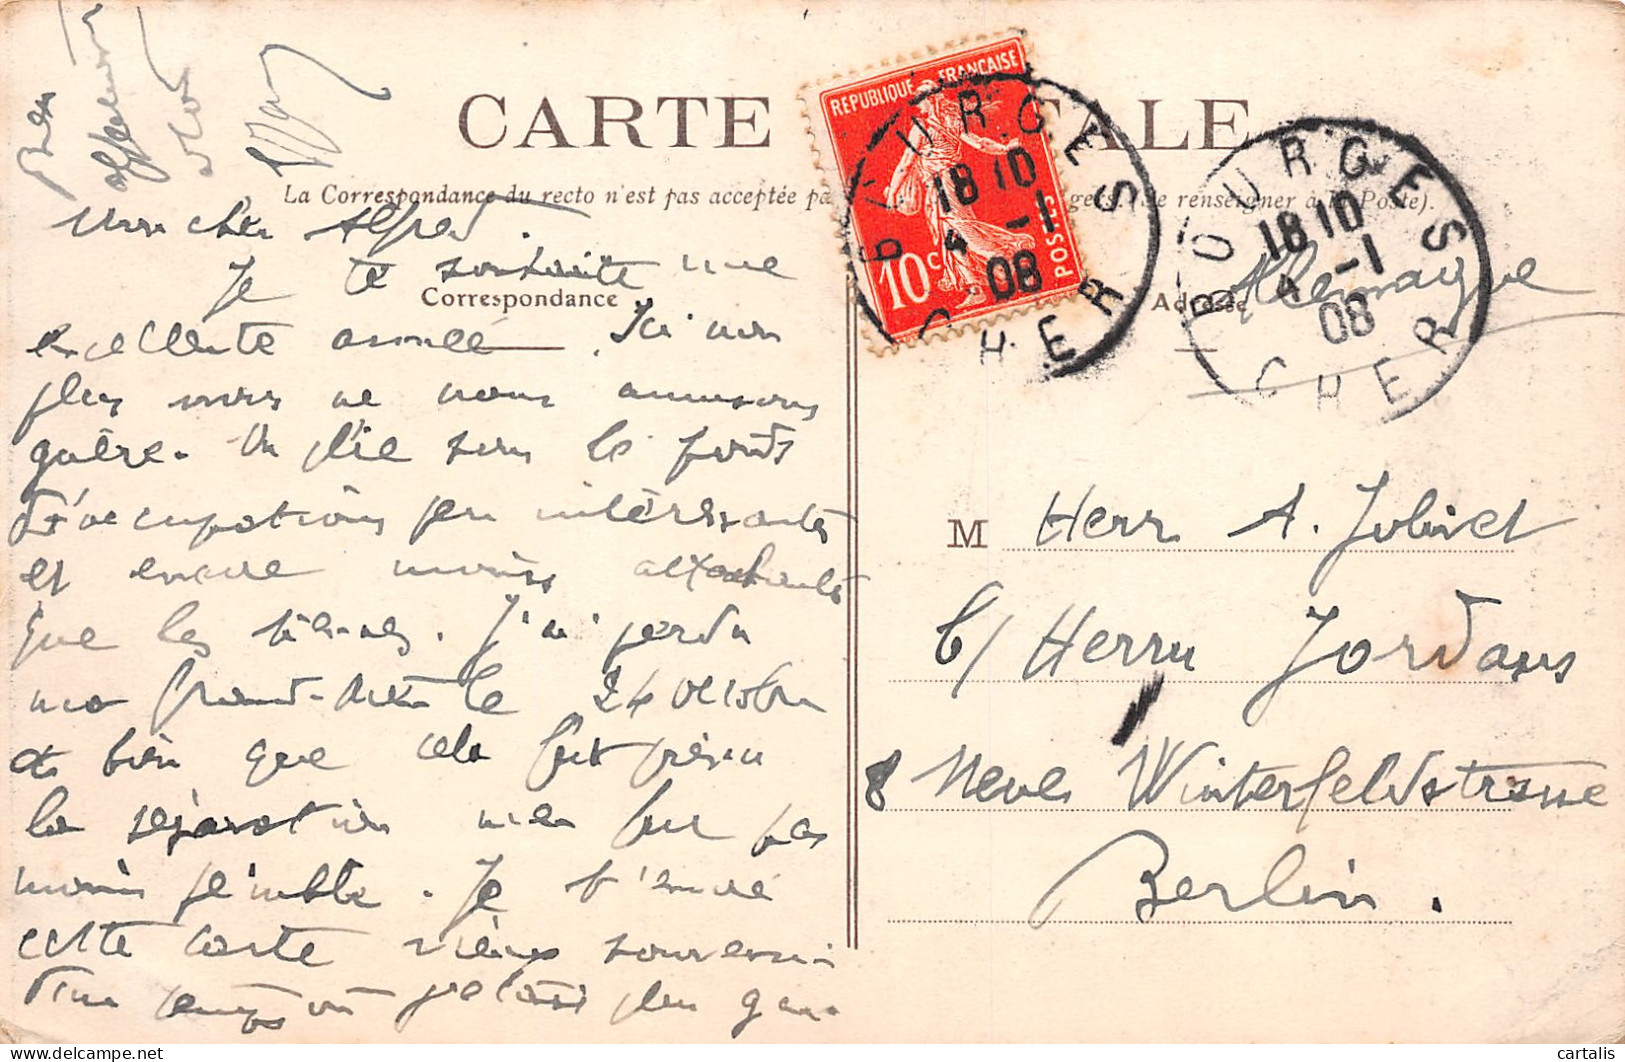 CARTE POSTALE
La Correspondance du recto n'est pas acceptée pa gers. (Se renseigner à la Poste).
Correspondance
Adresse
REPUBLIQUE FRANÇAISE
10c
POSTES
BOURGES
18 10
4 -1
08
CHER
BOURGES
18 10
4 -1
08
CHER
Bien
affectueusement
à toi
Mon cher Alfred.
Je te souhaite une
excellente année. Ici non
plus nous ne nous amusons
guère. On plie sous le poids
d'occupations peu intéressantes
et encore moins attachantes
que les tiennes. J'ai perdu
ma grand-mère le 24 octobre
et bien que cela fut prévu
la séparation n'en fut pas
moins pénible. Je t'envoie
cette carte vieux souvenir
d'un temps où j'étais plus gai
Allemagne
M Herr A. Jolivet
b/ Herrn Jordans
8 Neue Winterfeldstrasse
Berlin.
cartalis